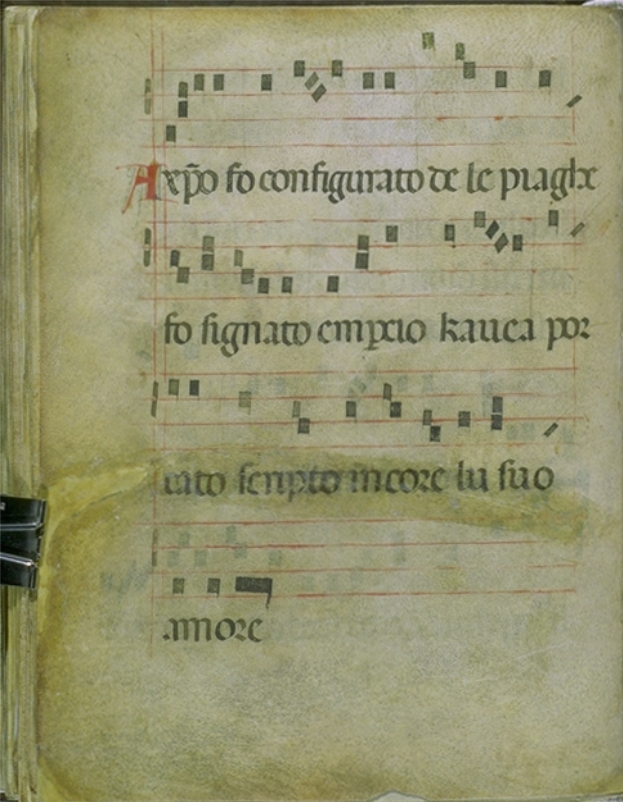 Axp̄o fo configurato de le piaghe
fo signato emꝑcio kauea por
tato scripto incore lu suo
amore